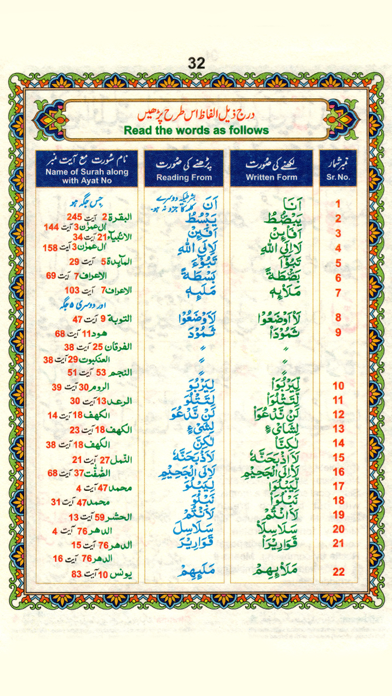 32
درج ذیل الفاظ اس طرح پڑھیں
Read the words as follows
نمبر شمار لکھنے کی صورت پڑھنے کی صورت نام سورت مع آیت نمبر
Sr. No. Written Form Reading From Name of Surah along with Ayat No
1 اَنَا اَنَ جس جگہ ہو
2 يَبْصُۜطُ يَبْسُطُ البقرة 2 آیت 245
3 اَفَا۟ئِنْ اَفَئِنْ اٰل عمرٰن 3 آیت 144
الانبیاء 21 آیت 34
4 لَا۟اِلَى اللهِ لَاِلَى اللهِ اٰل عمرٰن 3 آیت 158
5 تَبُوْٓءَا۟ تَبُوْٓءَ المآيدة 5 آیت 29
6 بَصْۜطَةً بَسْطَةً الاعراف 7 آیت 69
7 مَلَا۟ئِهٖ مَلَئِهٖ الاعراف 7 آیت 103
اور دوسری 5 جگہ
8 لَا۟اَوْضَعُوْا لَاَوْضَعُوْا التوبة 9 آیت 47
9 ثَمُوْدَا۟ ثَمُوْدَ هود 11 آیت 68
〃 〃 الفرقان 25 آیت 38
〃 〃 العنكبوت 29 آیت 38
〃 〃 النجم 53 آیت 51
10 لِيَرْبُوَا۟ لِيَرْبُوَ الروم 30 آیت 39
11 لِتَتْلُوَا۟ لِتَتْلُوَ الرعد 13 آیت 30
12 لَنْ نَّدْعُوَا۟ لَنْ نَّدْعُوَ الكهف 18 آیت 14
13 لِشَا۟یْءٍ لِشَیْءٍ الكهف 18 آیت 23
14 لٰكِنَّا۟ لٰكِنَّ الكهف 18 آیت 38
15 لَا۟اَذْبَحَنَّهٗ لَاَذْبَحَنَّهٗ النمل 27 آیت 21
16 لَا۟اِلَى الْجَحِيْمِ لَاِلَى الْجَحِيْمِ الصّٰفّٰت 37 آیت 68
17 لِيَبْلُوَا۟ لِيَبْلُوَ محمد 47 آیت 4
18 نَبْلُوَا۟ نَبْلُوَ محمد 47 آیت 31
19 لَا۟اَنْتُمْ لَاَنْتُمْ الحشر 59 آیت 13
20 سَلٰسِلَا۟ سَلَاسِلَ الدهر 76 آیت 4
21 قَوَارِيْرَا۟ قَوَارِيْرَ الدهر 76 آیت 15
الدهر 76 آیت 16
22 مَلَا۟ئِهِمْ مَلَئِهِمْ يونس 10 آیت 83